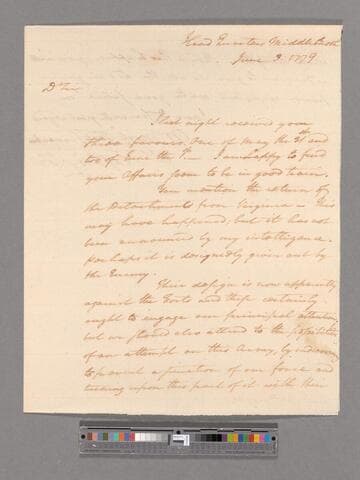 Head Quarters Middle Brook
June 3. 1779
D Sir
Last night received your
three favours, one of May the 31st and
two of June the 1st.— I am happy to find
your affairs seem to be in good train.
You mention the return of
the Detachment from Virginia — This
may have happened, but it has not
been announced by my intelligence.
perhaps it is designedly given out by
the Enemy.
Their design is now apparently
against the Forts and these certainly
ought to engage our principal attention
but we should also attend to the possibility
of an attempt on this Army, by
to a junction of our force and
turning upon this part of it with their